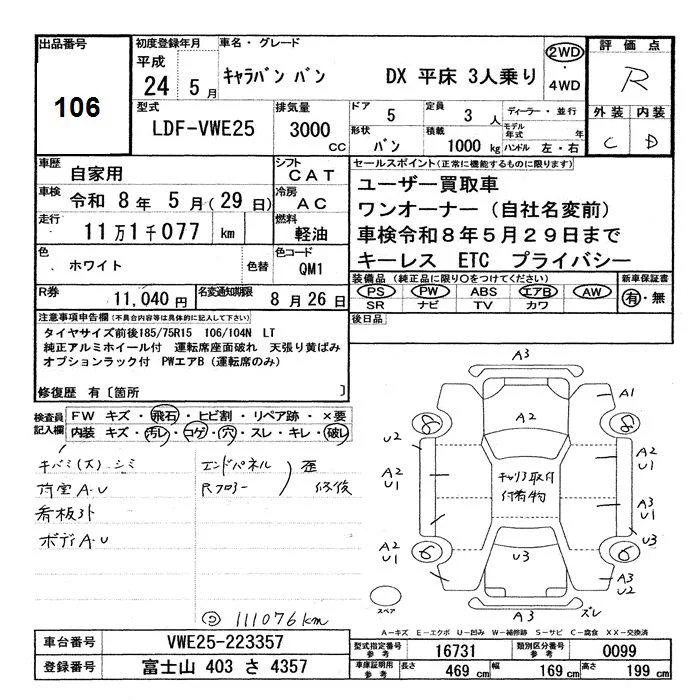 出品番号
106
初度登録年月
平成
24 5月
車名・グレード
ｷｬﾗﾊﾞﾝ ﾊﾞﾝ DX 平床 3人乗り
2WD
・
4WD
評価点
R
外装 内装
C D
型式
LDF-VWE25
排気量
3000 cc
ドア 5
定員 3 人
形状 バン
積載 1000 kg
ディーラー・並行
モデル年式 年
ハンドル 左・右
車歴 自家用
車検 令和 8 年 5 月(29 日)
走行 11万1千077 km
色 ホワイト 色替
シフト CAT
冷房 AC
燃料 軽油
色コード QM1
R券 11,040円
名変通知期限 8月26日
セールスポイント(正常に機能するものに限ります)
ユーザー買取車
ワンオーナー（自社名変前）
車検令和8年5月29日まで
キーレス ETC プライバシー
装備品（純正品に限り○をつけてください）
PS PW ABS エアB AW
SR ナビ TV カワ
新車保証書
有・無
後日品
注意事項申告欄(不具合内容等は具体的に記入して下さい)
タイヤサイズ前後185/75R15 106/104N LT
純正アルミホイール付 運転席座面破れ 天張り黄ばみ
オプションラック付 PWエアB（運転席のみ）
修復歴 有〔箇所 〕
検査員記入欄
FW キズ・飛石・ヒビ割・リペア跡・×要
内装 キズ・汚レ・コゲ・穴・スレ・キレ・破レ
キバミ(大)・シミ
荷室A・U
看板外
ボディA・U
エンドパネル
Rフロアー
歪
修復
111076km
A3
A1
A2
8
8
U2
A2
U1
A2
U1
キャリア取付
付着物
A3
U1
U3
A2
U1
6
6
U3
A3
U2
A3
ズレ
スペア
A－キズ E－エクボ U－凹み W－補修跡 S－サビ C－腐食 XX－交換済
車台番号 VWE25-223357
登録番号 富士山 403 さ 4357
型式指定番号 参考 16731
類別区分番号 参考 0099
車庫証明用 参考 長さ 469 cm 幅 169 cm 高さ 199 cm